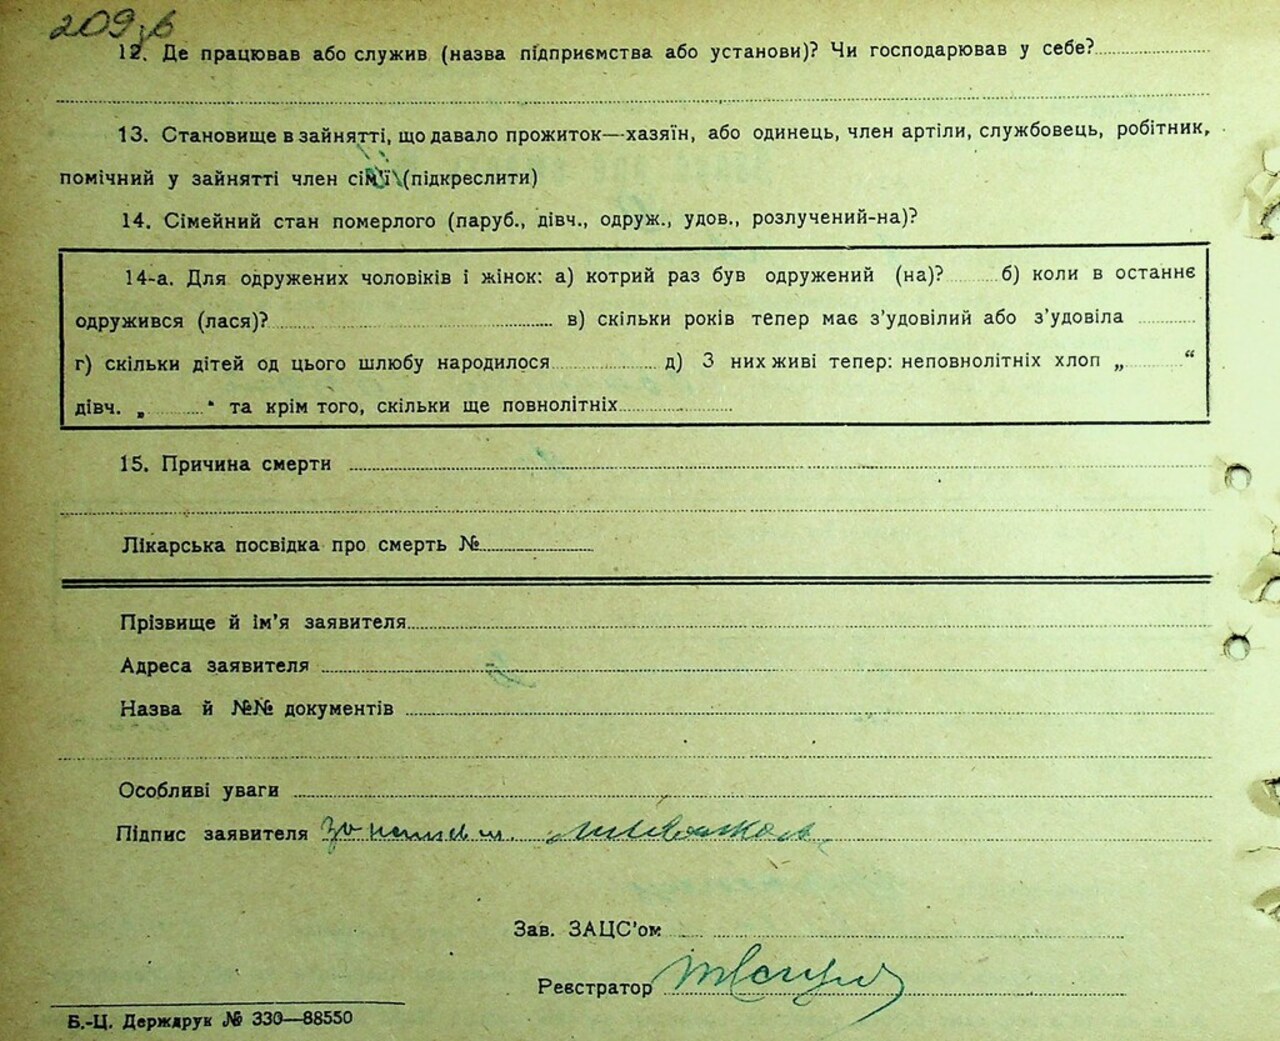 209зв
12. Де працював або служив (назва підприємства або установи)? Чи господарював у себе?
13. Становище в зайнятті, що давало прожиток—хазяїн, або одинець, член артіли, службовець, робітник,
помічний у зайнятті член сім'ї (підкреслити)
14. Сімейний стан померлого (паруб., дівч., одруж., удов., розлучений-на)?
14-а. Для одружених чоловіків і жінок: а) котрий раз був одружений (на)? б) коли в останнє
одружився (лася)? в) скільки років тепер має з'удовілий або з'удовіла
г) скільки дітей од цього шлюбу народилося д) З них живі тепер: неповнолітніх хлоп „ “
дівч. „ “ та крім того, скільки ще повнолітніх
15. Причина смерти
Лікарська посвідка про смерть №
Прізвище й ім'я заявителя
Адреса заявителя
Назва й №№ документів
Особливі уваги
Підпис заявителя
Зав. ЗАЦС'ом
Реєстратор
Б.-Ц. Держдрук № 330—88550